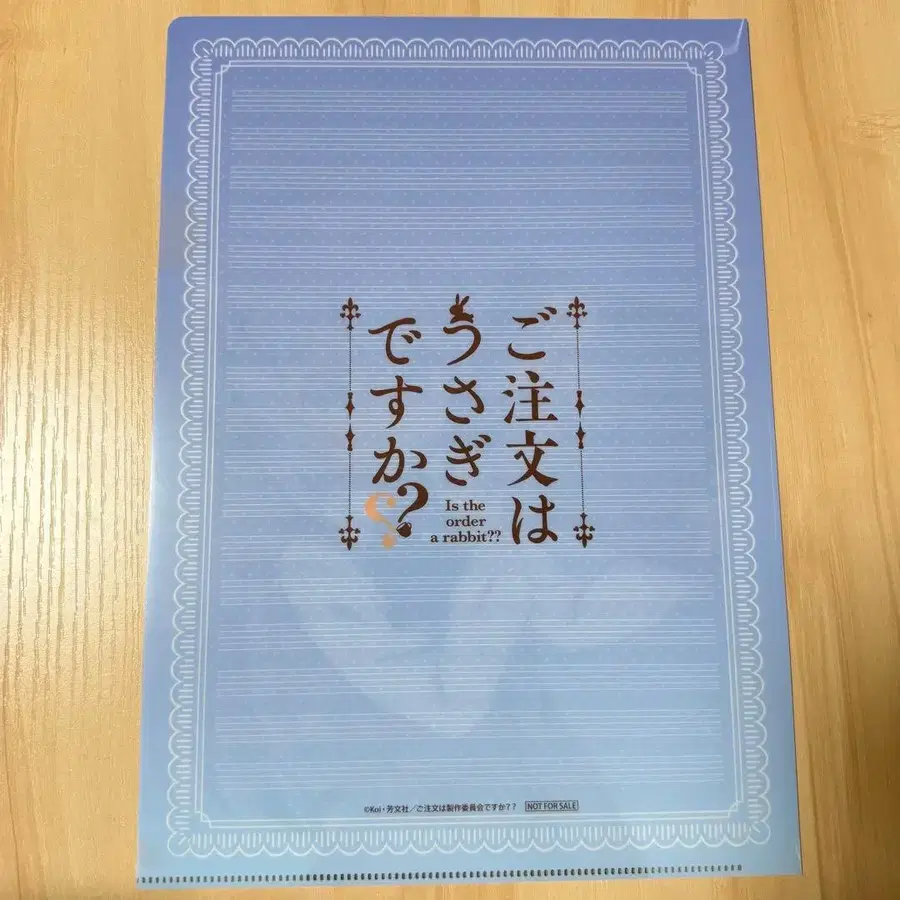 ご注文は
うさぎ
ですか??
Is the
order
a rabbit??
©Koi・芳文社／ご注文は製作委員会ですか？？
NOT FOR SALE